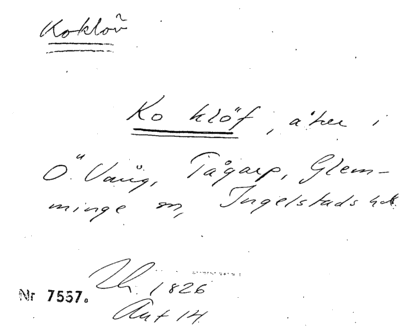 Koklöv
Ko klöf, åker i
Ö. Vång, Tågarp, Glem-
minge sn, Ingelstads hd.
1826
Nr 7557.
Akt 14